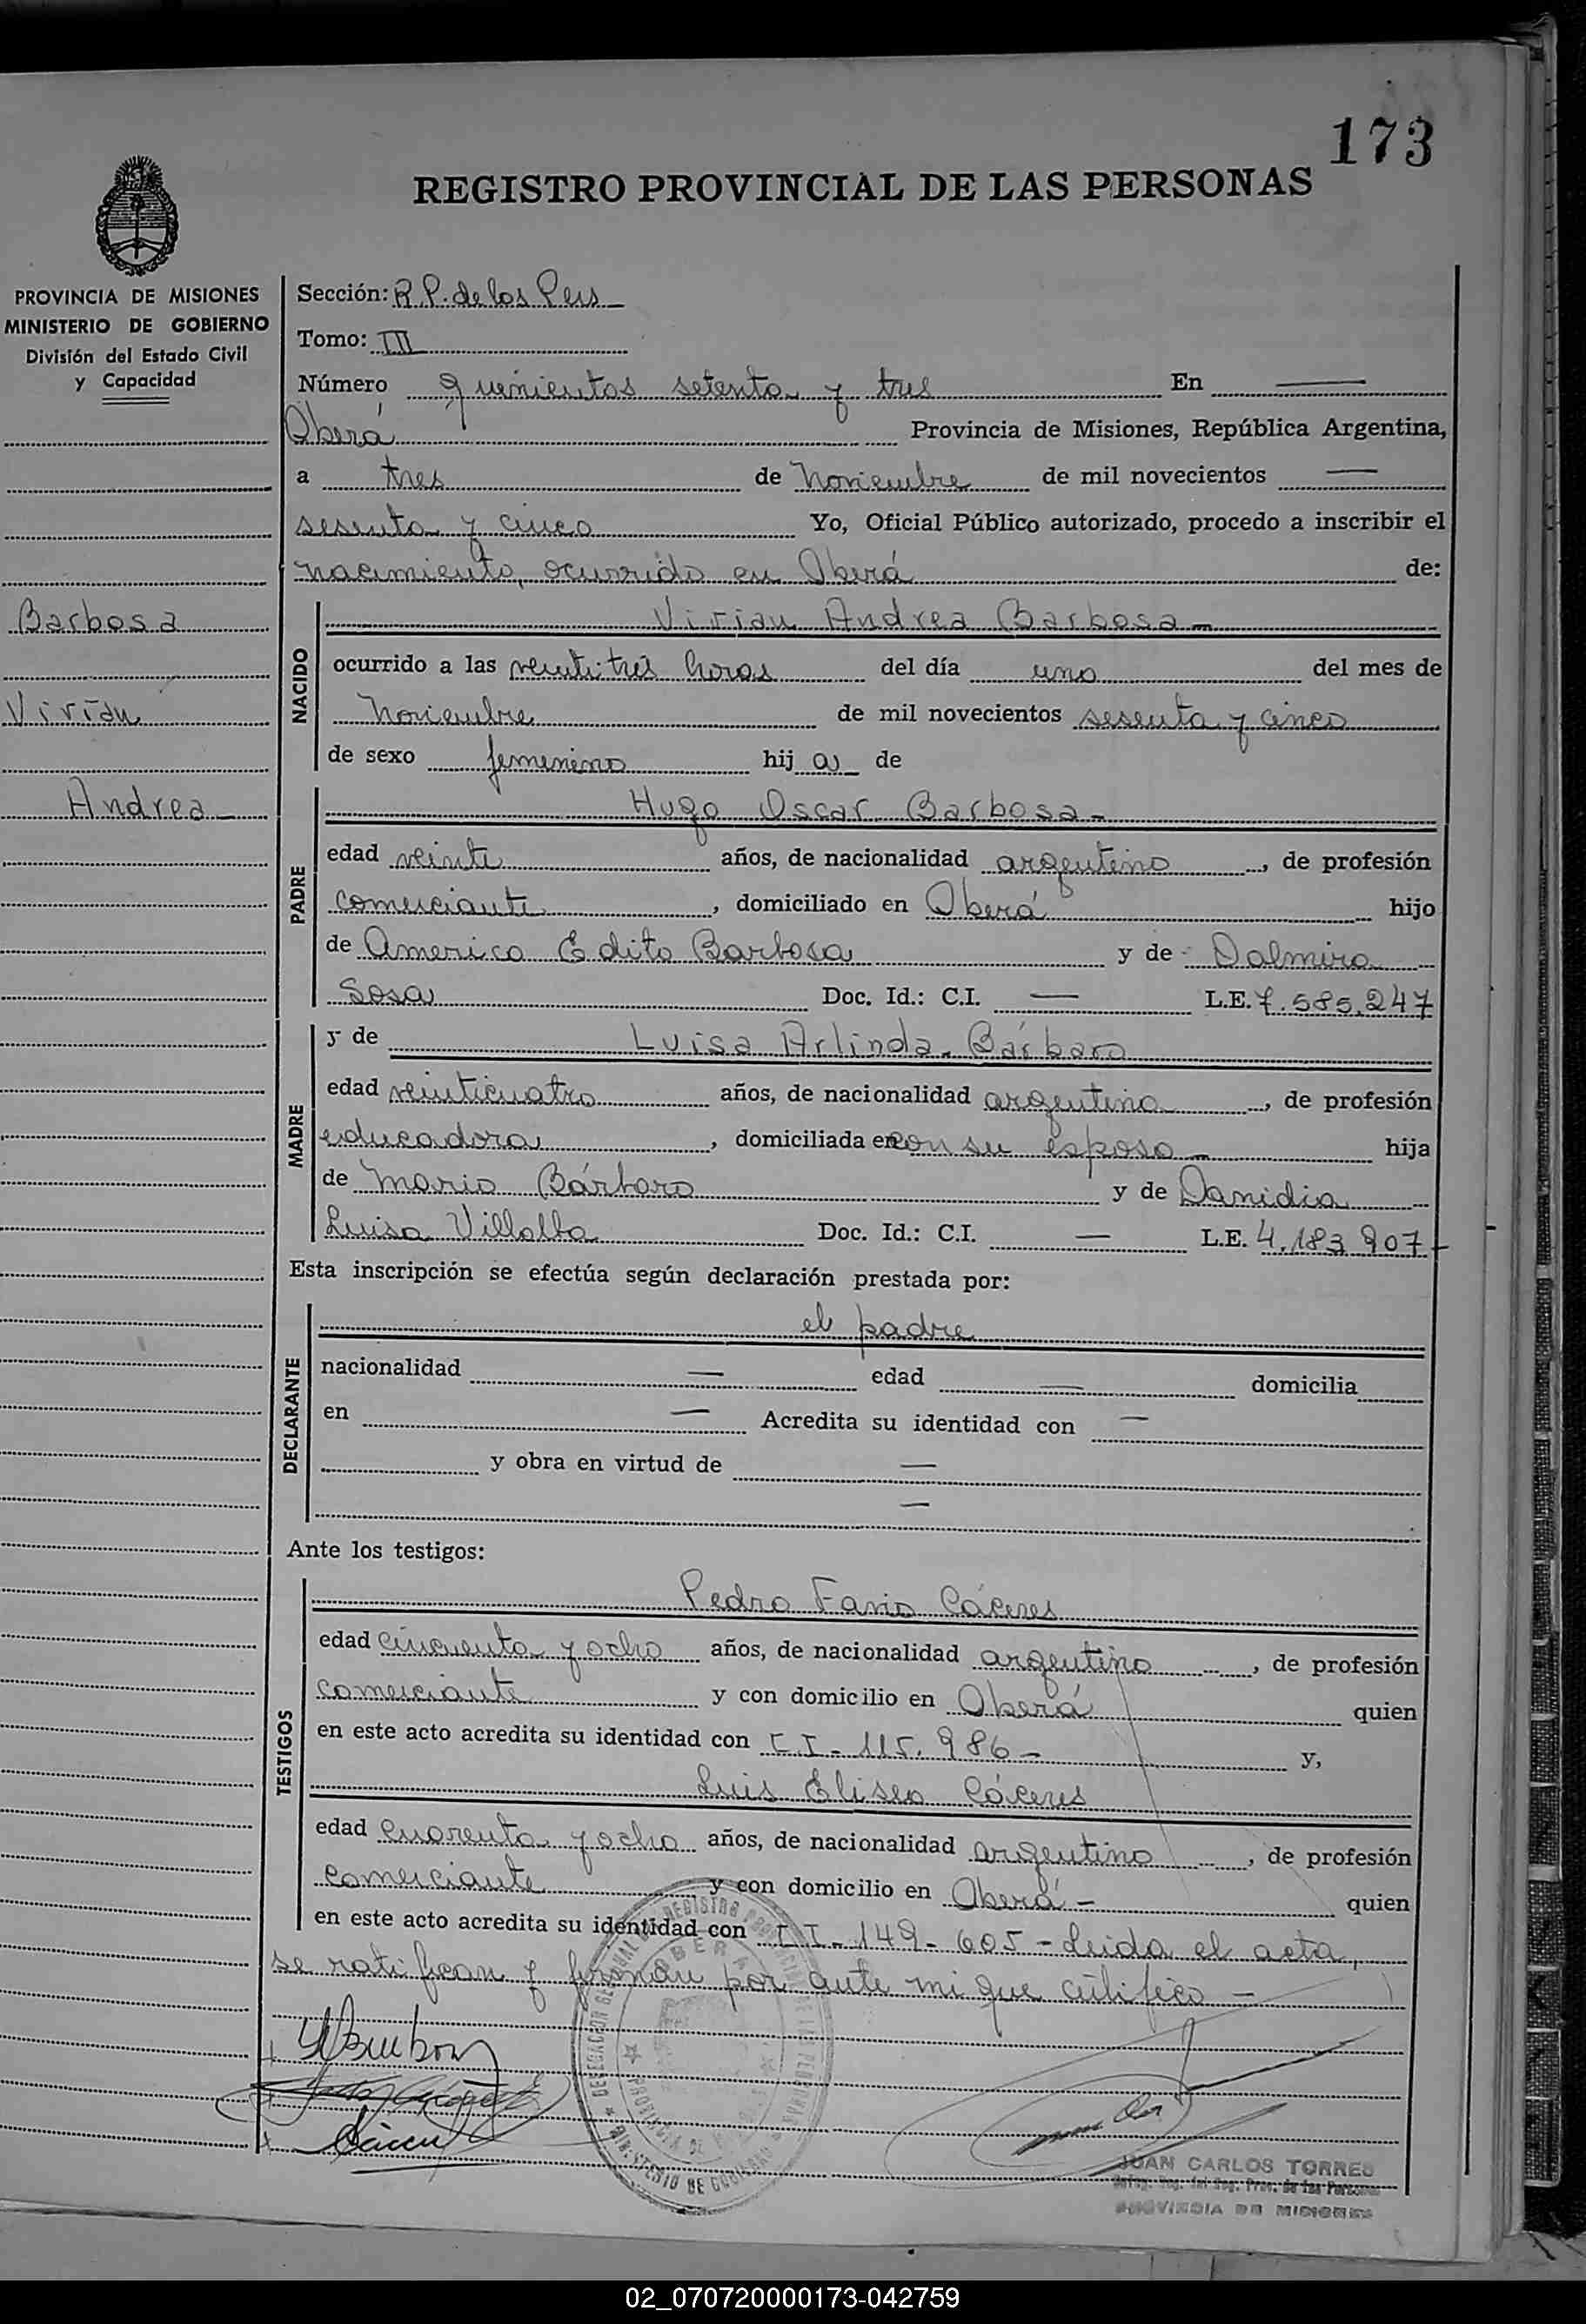 173
REGISTRO PROVINCIAL DE LAS PERSONAS
PROVINCIA DE MISIONES
MINISTERIO DE GOBIERNO
División del Estado Civil
y Capacidad
Barbosa
Vivian
Andrea
Sección: R.P. de los Pers
Tomo: III
Número quinientos setenta y tres En —
Oberá Provincia de Misiones, República Argentina,
a tres de Noviembre de mil novecientos —
sesenta y cinco Yo, Oficial Público autorizado, procedo a inscribir el
nacimiento, ocurrido en Oberá de:
NACIDO
Vivian Andrea Barbosa -
ocurrido a las veintitrés horas del día uno del mes de
Noviembre de mil novecientos sesenta y cinco
de sexo femenino hij a de
PADRE
Hugo Oscar Barbosa -
edad veinte años, de nacionalidad argentino, de profesión
comerciante, domiciliado en Oberá hijo
de Americo Edito Barbosa y de Dalmira
Sosa Doc. Id.: C.I. — L.E. 7.585.247
MADRE
y de Luisa Arlinda Bárbaro
edad veinticuatro años, de nacionalidad argentina, de profesión
educadora, domiciliada en con su esposo - hija
de Mario Bárbaro y de Danidia
Luisa Villalba Doc. Id.: C.I. — L.E. 4.183.907-
Esta inscripción se efectúa según declaración prestada por:
DECLARANTE
el padre
nacionalidad — edad — domicilia
en — Acredita su identidad con —
y obra en virtud de —
—
Ante los testigos:
TESTIGOS
Pedro Favio Cáceres
edad cincuenta y ocho años, de nacionalidad argentino, de profesión
comerciante y con domicilio en Oberá quien
en este acto acredita su identidad con C I - 115.986 - y,
Luis Eliseo Cáceres
edad cuarenta y ocho años, de nacionalidad argentino, de profesión
comerciante y con domicilio en Oberá - quien
en este acto acredita su identidad con C I - 149-605 - Leida el acta,
se ratifican y firman por ante mi que certifico -
OBERA
PROVINCIA DE
MINISTERIO DE GOBIERNO
JUAN CARLOS TORRES
PROVINCIA DE MISIONES
02_070720000173-042759